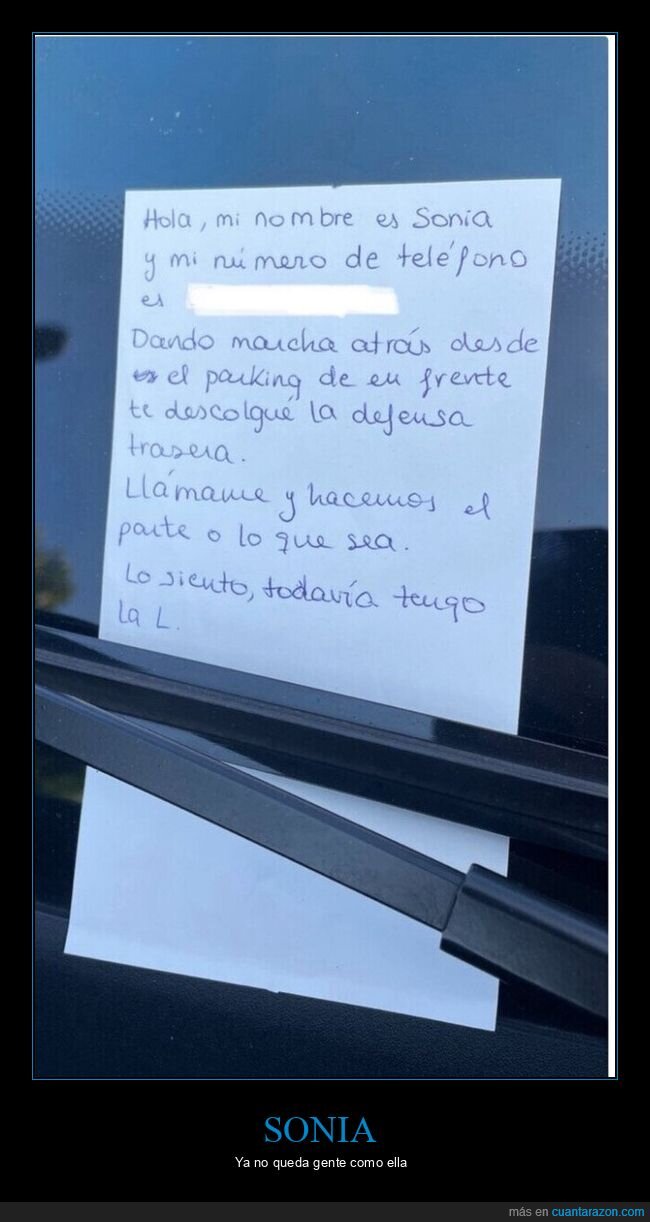 Hola, mi nombre es Sonia
y mi número de teléfono
es
Dando marcha atrás desde
el parking de en frente
te descolgué la defensa
trasera.
Llámame y hacemos el
parte o lo que sea.
Lo siento, todavía tengo
la L.
SONIA
Ya no queda gente como ella
más en cuantarazon.com